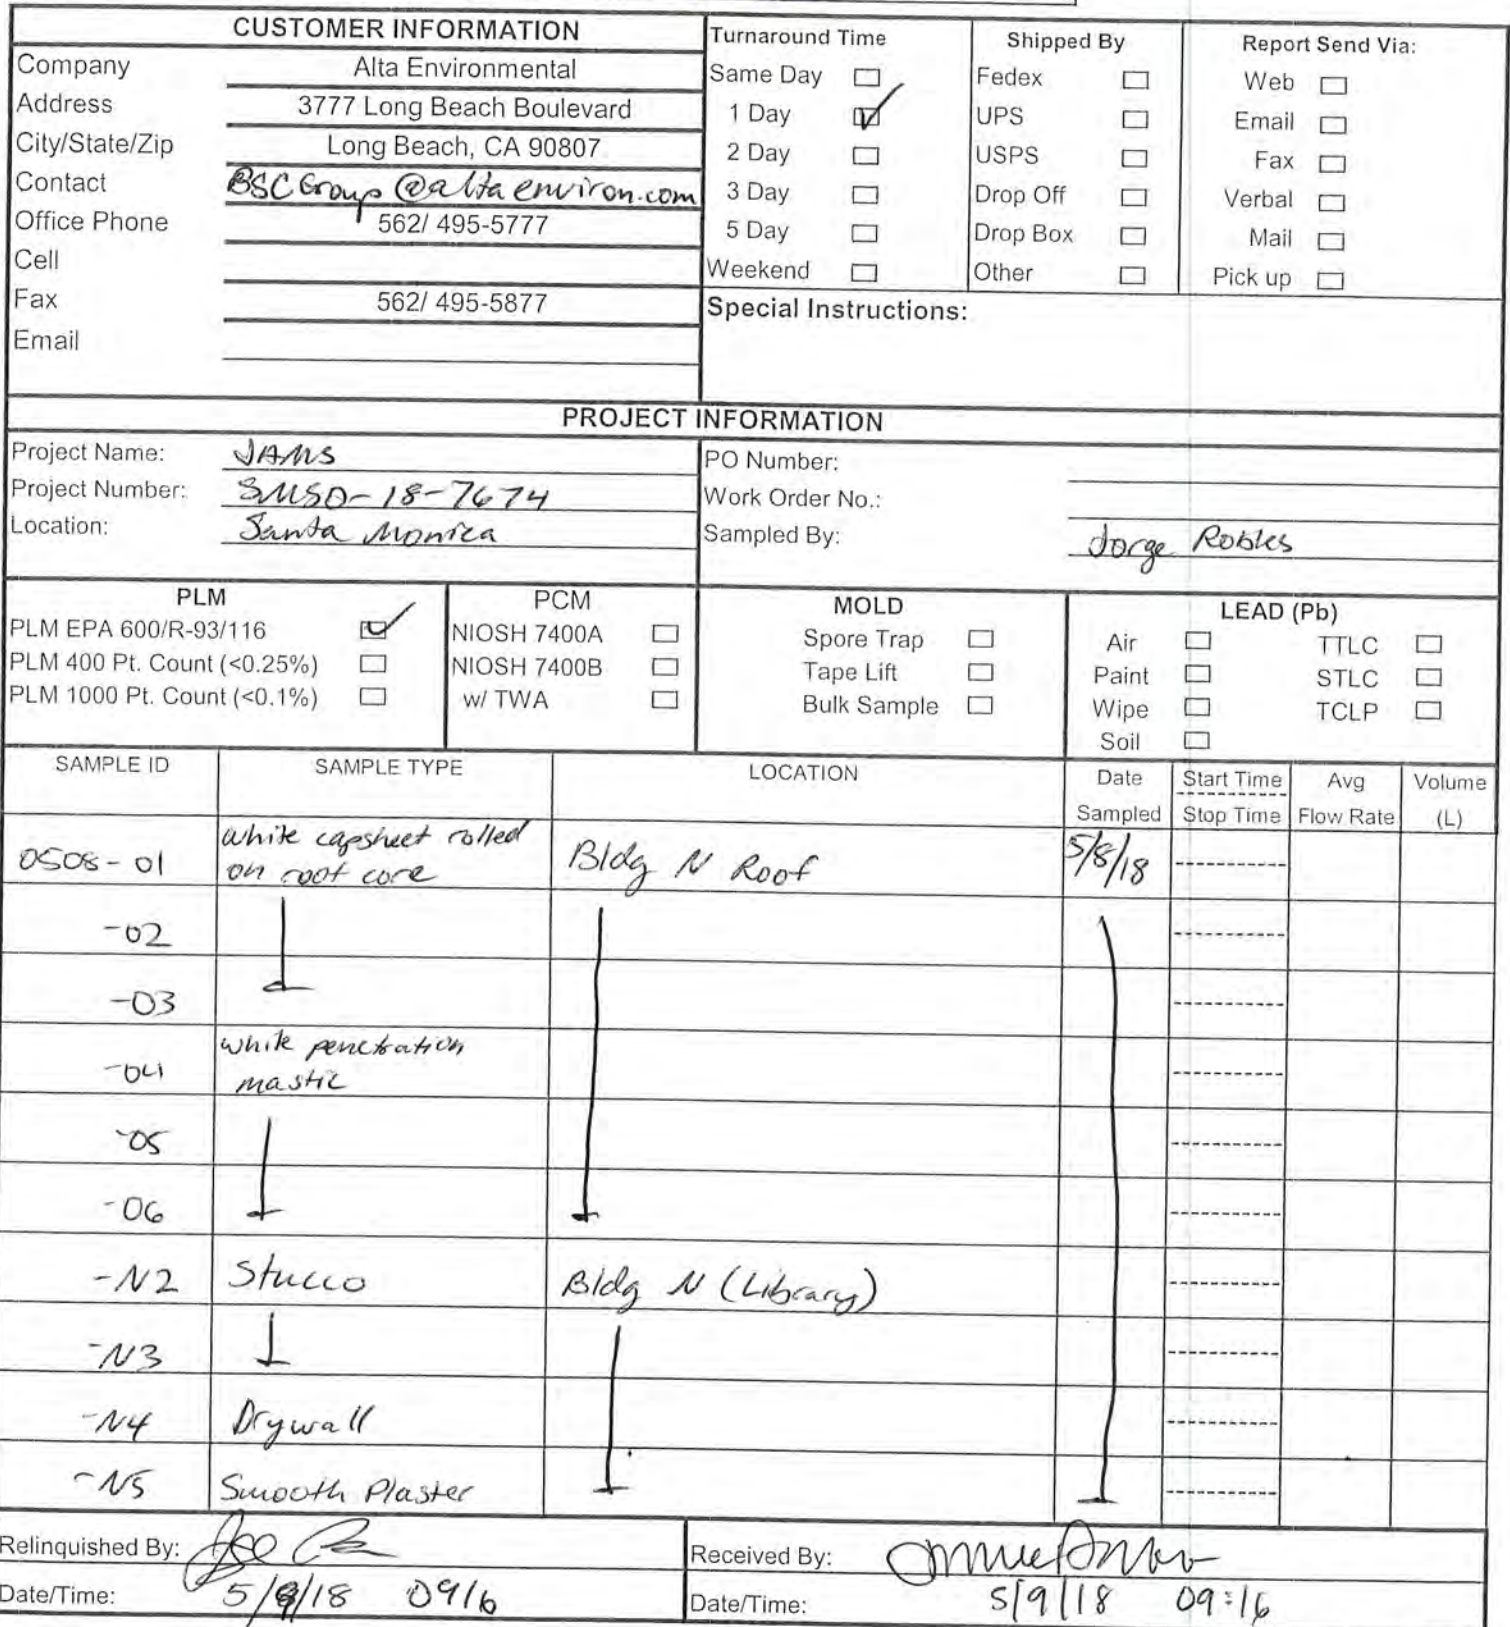 CUSTOMER INFORMATION
Company Alta Environmental
Address 3777 Long Beach Boulevard
City/State/Zip Long Beach, CA 90807
Contact BSCGroup@altaenviron.com
Office Phone 562/ 495-5777
Cell
Fax 562/ 495-5877
Email
Turnaround Time
Same Day
1 Day
2 Day
3 Day
5 Day
Weekend
Shipped By
Fedex
UPS
USPS
Drop Off
Drop Box
Other
Report Send Via:
Web
Email
Fax
Verbal
Mail
Pick up
Special Instructions:
PROJECT INFORMATION
Project Name: JAMS
Project Number: SMSD-18-7674
Location: Santa Monica
PO Number:
Work Order No.:
Sampled By: Jorge Robles
PLM
PLM EPA 600/R-93/116
PLM 400 Pt. Count (<0.25%)
PLM 1000 Pt. Count (<0.1%)
PCM
NIOSH 7400A
NIOSH 7400B
w/ TWA
MOLD
Spore Trap
Tape Lift
Bulk Sample
LEAD (Pb)
Air TTLC
Paint STLC
Wipe TCLP
Soil
SAMPLE ID SAMPLE TYPE LOCATION Date Start Time Avg Volume
Sampled Stop Time Flow Rate (L)
white capsheet rolled
0508-01 on roof core Bldg N Roof 5/8/18
-02
-03
white penetration
-04 mastic
-05
-06
-N2 Stucco Bldg N (Library)
-N3
-N4 Drywall
-N5 Smooth Plaster
Relinquished By:
Date/Time: 5/9/18 0916
Received By:
Date/Time: 5/9/18 09:16